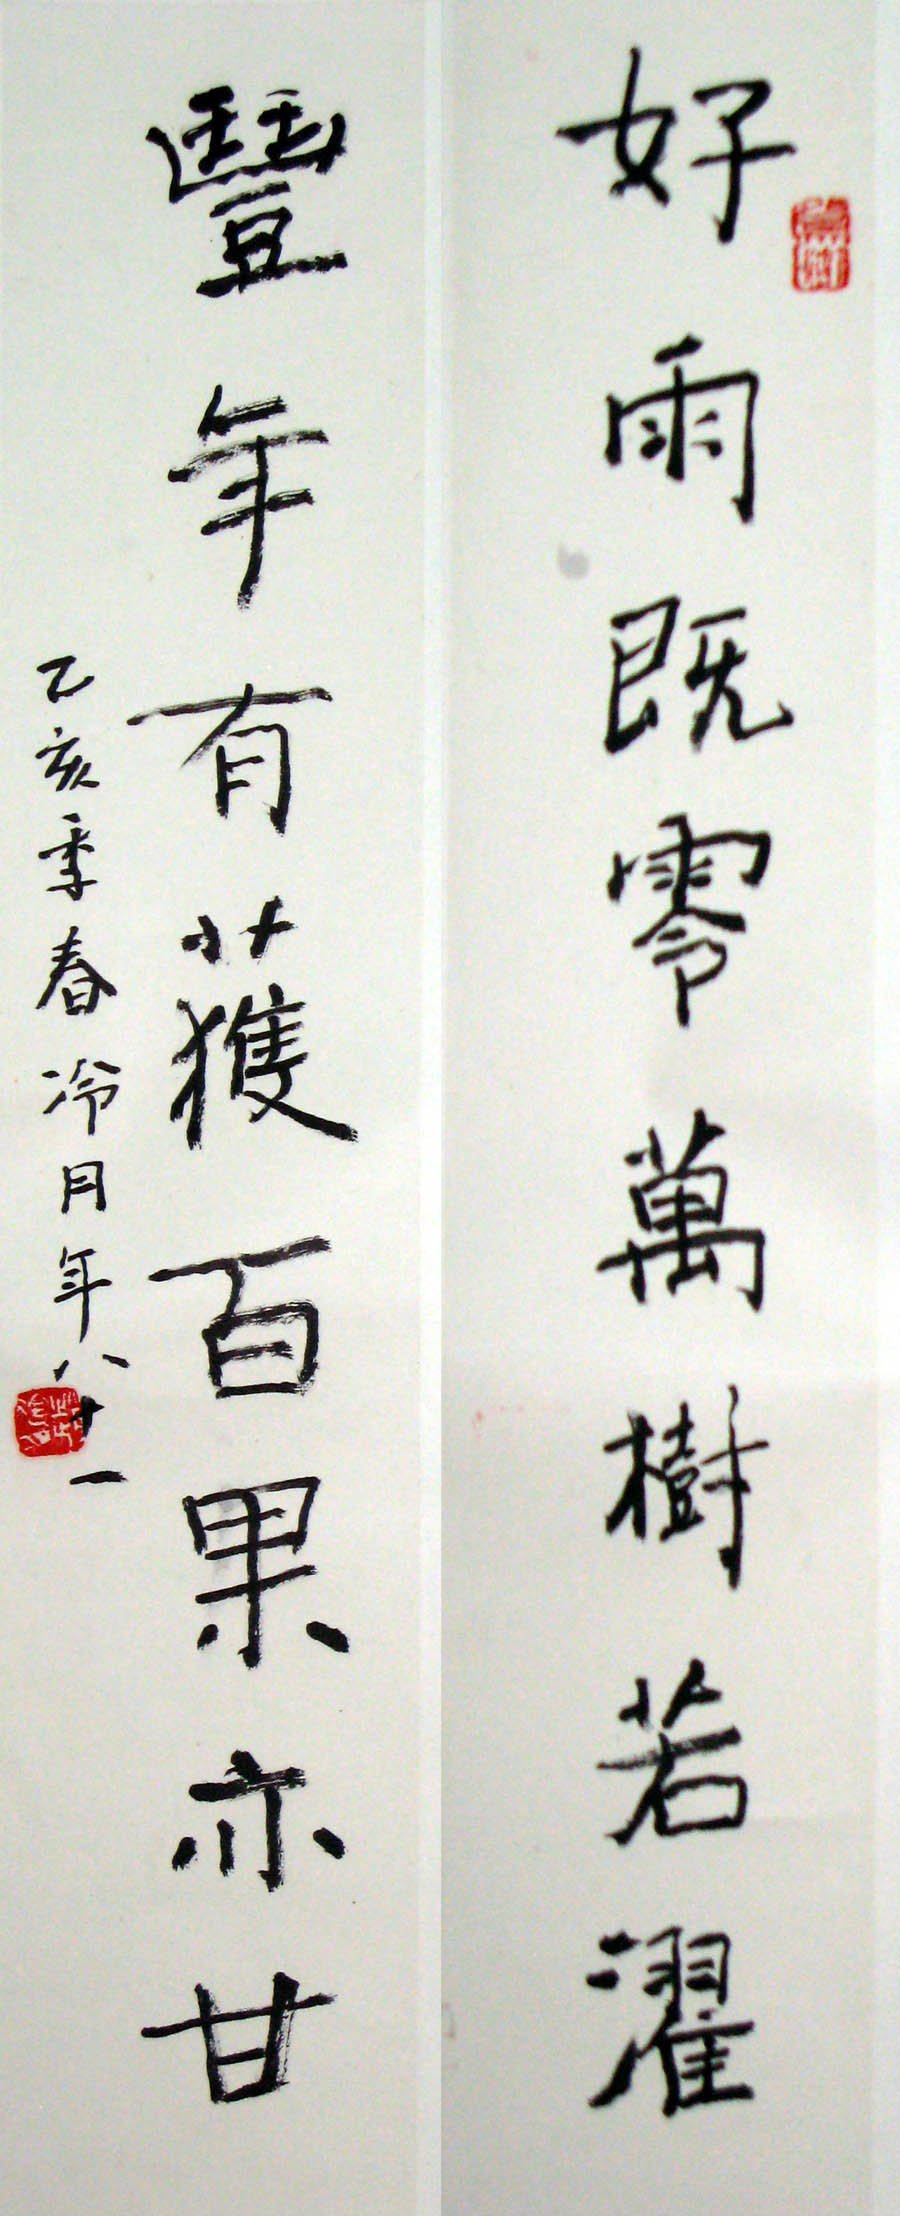 好雨既零萬樹若濯
豐年有獲百果亦甘
乙亥季春冷月年八十一